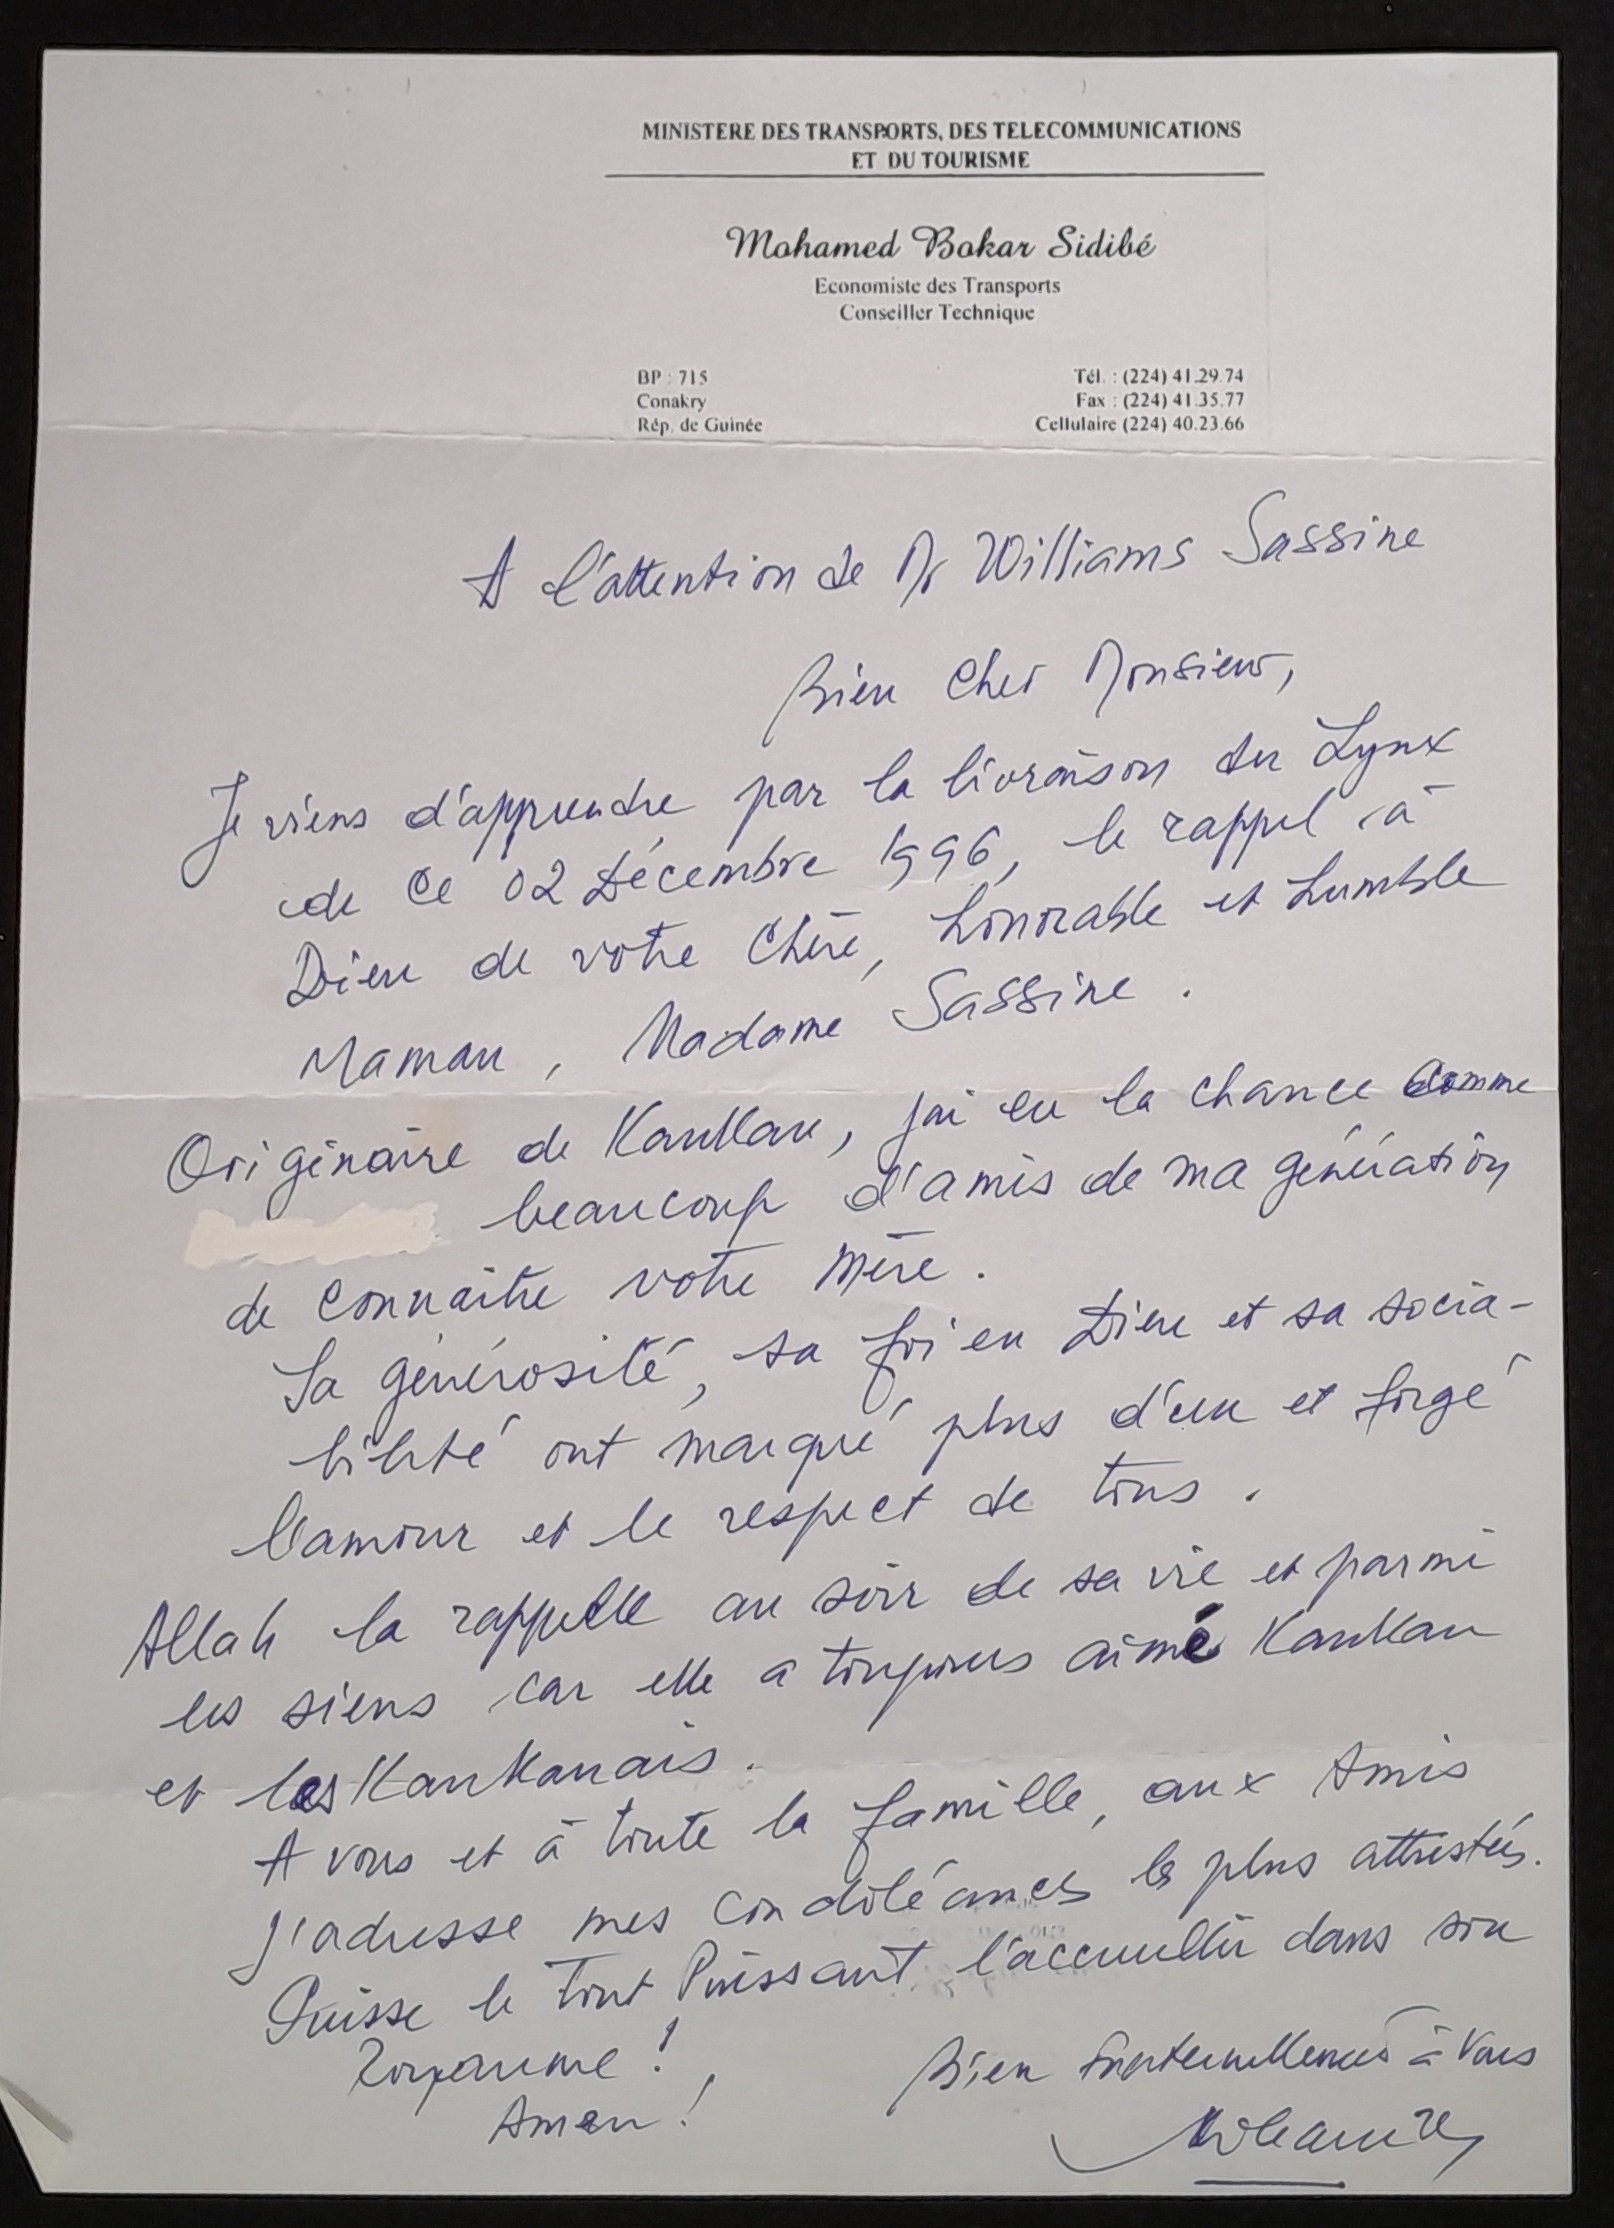 MINISTERE DES TRANSPORTS, DES TELECOMMUNICATIONS
ET DU TOURISME
Mohamed Bokar Sidibé
Economiste des Transports
Conseiller Technique
BP : 715
Conakry
Rép. de Guinée
Tél. : (224) 41.29.74
Fax : (224) 41.35.77
Cellulaire (224) 40.23.66
A l'attention de Mr Williams Sassine
Bien Cher Monsieur,
Je viens d'apprendre par la livraison du Lynx
de ce 02 Décembre 1996, le rappel à
Dieu de votre Chère, honorable et humble
Maman, Madame Sassine.
Originaire de Kankan, j'ai eu la chance comme
beaucoup d'amis de ma génération
de connaître votre mère.
Sa générosité, sa foi en Dieu et sa socia-
bilité ont marqué plus d'un et forgé
l'amour et le respect de tous.
Allah la rappelle au soir de sa vie et parmi
les siens car elle a toujours aimé Kankan
et les Kankanais.
A vous et à toute la famille, aux Amis
j'adresse mes condoléances les plus attristées.
Puisse le Tout Puissant l'accueillir dans son
Royaume !
Amen !
Bien fraternellement à Vous